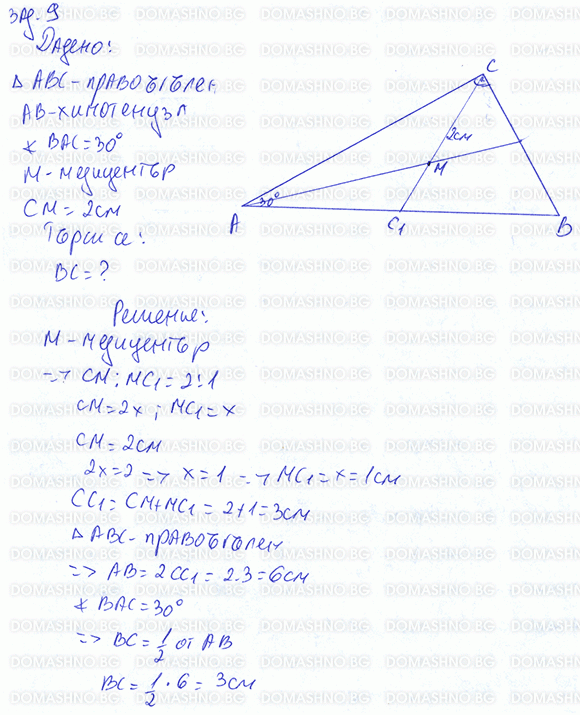 зад. 9
Дадено:
△ ABC - правоъгълен
AB - хипотенуза
∢ BAC = 30°
M - медицентър
CM = 2см
Търси се:
BC = ?
C
2см
M
30°
A
C₁
B
Решение:
M - медицентър
=> CM : MC₁ = 2:1
CM = 2x ; MC₁ = x
CM = 2см
2x = 2 => x = 1 => MC₁ = x = 1см
CC₁ = CM + MC₁ = 2+1 = 3см
△ ABC - правоъгълен
=> AB = 2CC₁ = 2.3 = 6см
∢ BAC = 30°
=> BC = 1/2 от AB
BC = 1/2 . 6 = 3см
DOMASHNO.BG